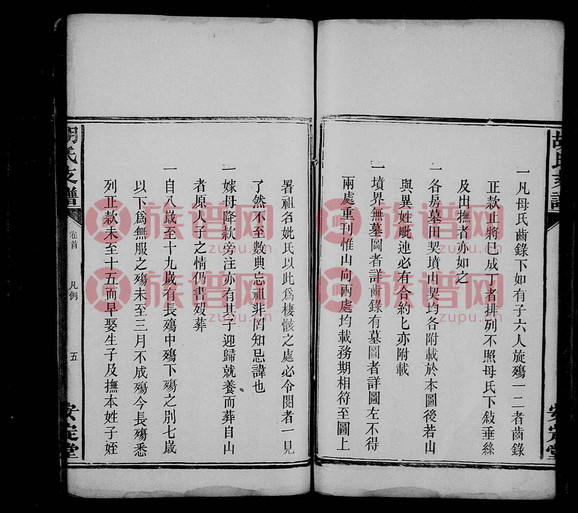 一凡母氏齒錄下如有子六人旋殤一二者齒錄
正款止將已成丁者排列不照母氏下敍垂絲
及出撫者亦如之
一各房墓田契墳山契均各附載於本圖後若山
與異姓毗連必有合約匕亦附載
一墳界無墓圖者詳齒錄有墓圖者詳圖左不得
兩處重刊惟山向兩處均載務期相符至圖上
署祖名妣氏以此爲棲骸之處必令閱者一見
了然不至數典忘祖非罔知忌諱也
一嫁母降款旁注亦有其子迎歸就養而葬自山
者原人子之情仍書歿葬
一自八歲至十九歲有長殤中殤下殤之別七歲
以下爲無服之殤未至三月不成殤今長殤悉
列正款未至十五而早娶生子及撫本姓子姪
胡氏支譜
卷首
凡例
五
安定堂
胡氏支譜
安定堂
族谱网
zupu.cn
族谱网
zupu.cn
族谱网
zupu.cn
族谱网
zupu.cn